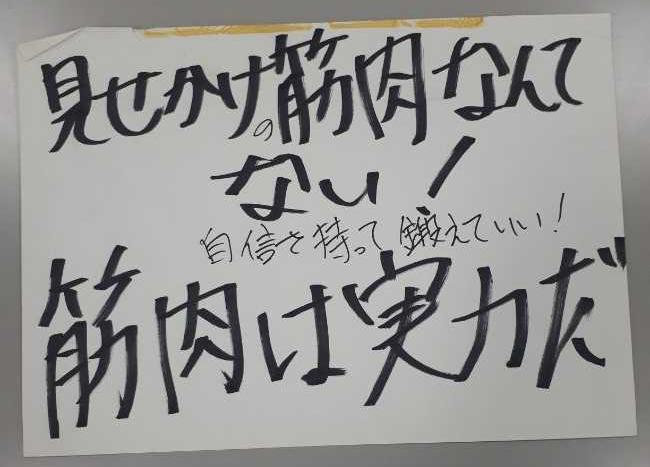 見せかけの筋肉なんて
ない！
自信を持って鍛えていい！
筋肉は実力だ